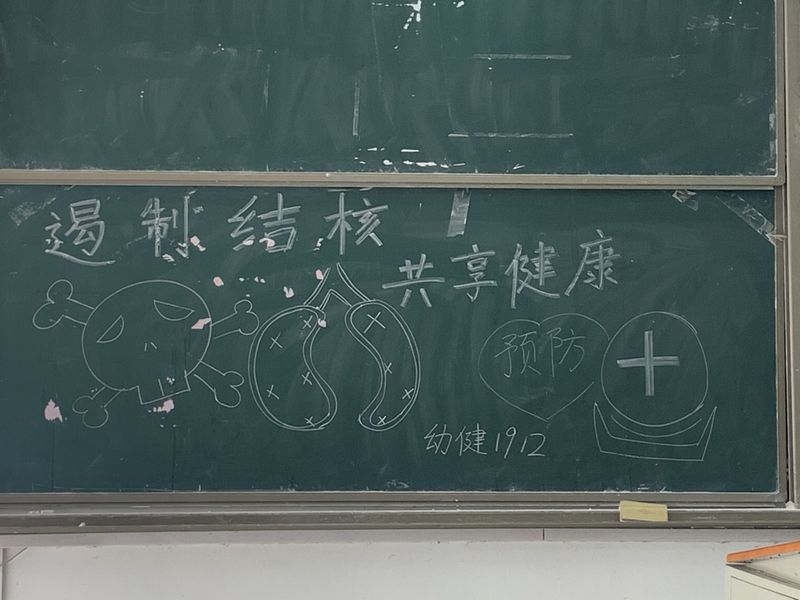 遏制结核
共享健康
预防
幼健1912